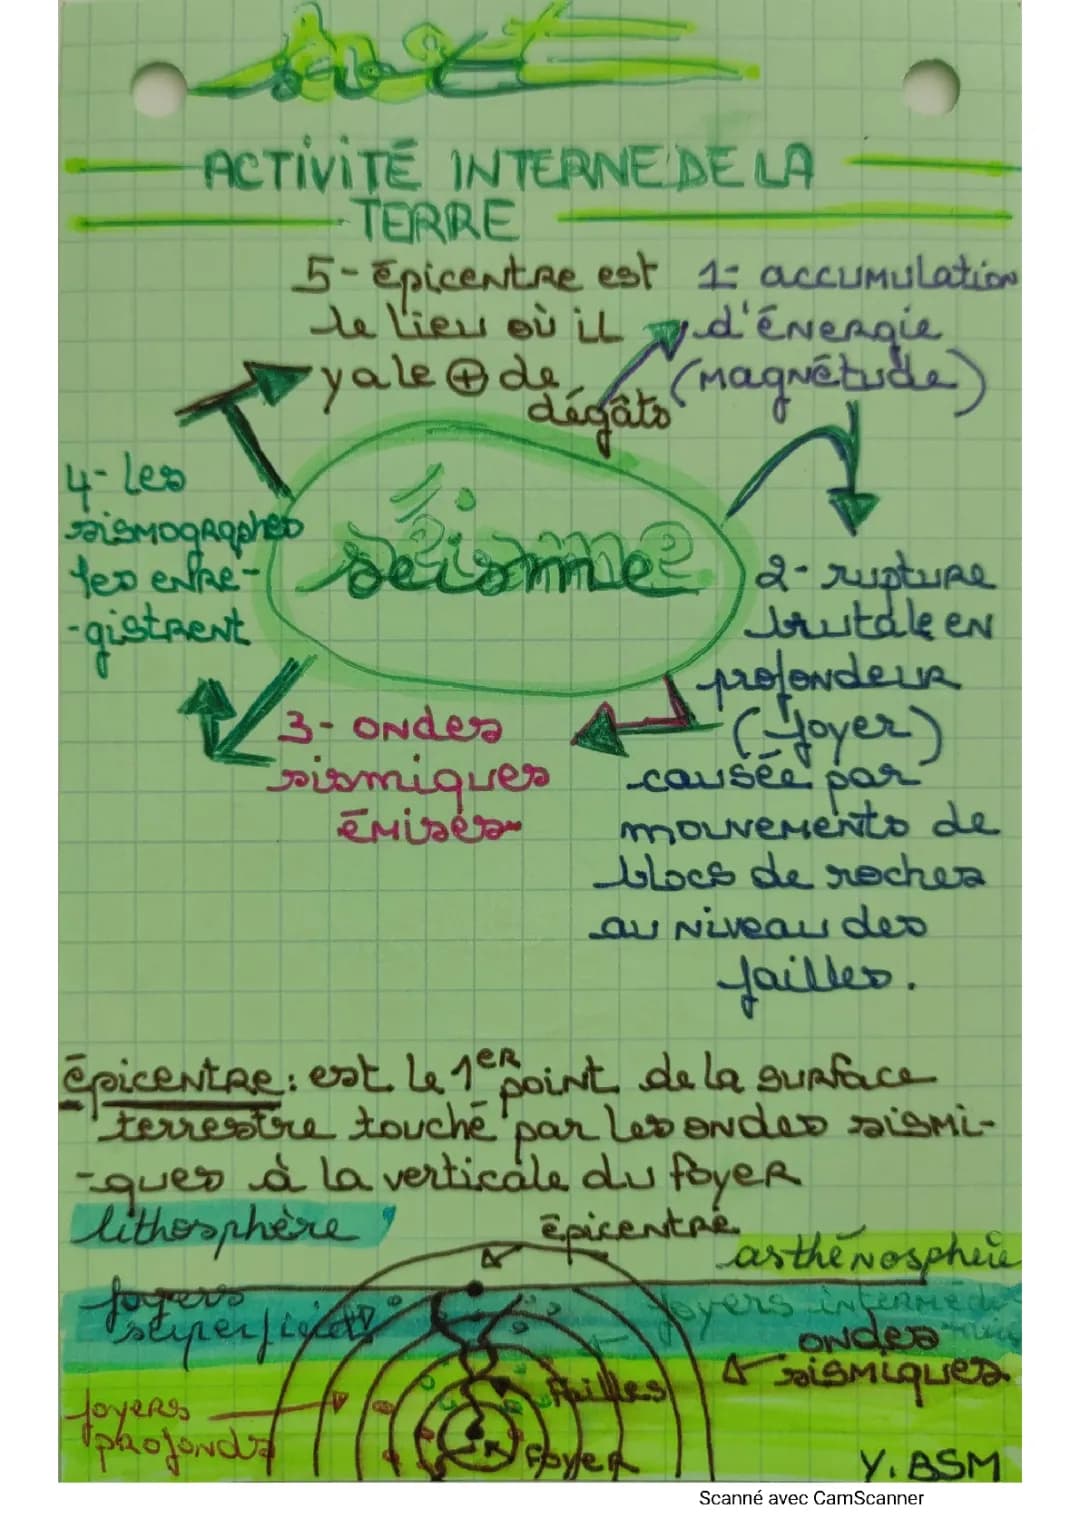 SVT
ACTIVITÉ INTERNE DE LA
TERRE
5- épicentre est
le lieu où il
y a le + de
dégâts
1- accumulation
d'énergie
(magnétude)
4- les
sismographes
les enre-
-gistrent
séisme
2- rupture
brutale en
profondeur
(foyer)
causée par
mouvements de
blocs de roches
au niveau des
failles.
3- ondes
sismiques
émises
épicentre : est le 1er point de la surface
terrestre touché par les ondes sismi-
-ques à la verticale du foyer
lithosphère
épicentre
asthénosphère
foyers
superficiels
foyers intermédiaires
ondes
sismiques.
failles
foyers
profonds
foyer
Y. BSM
Scanné avec CamScanner